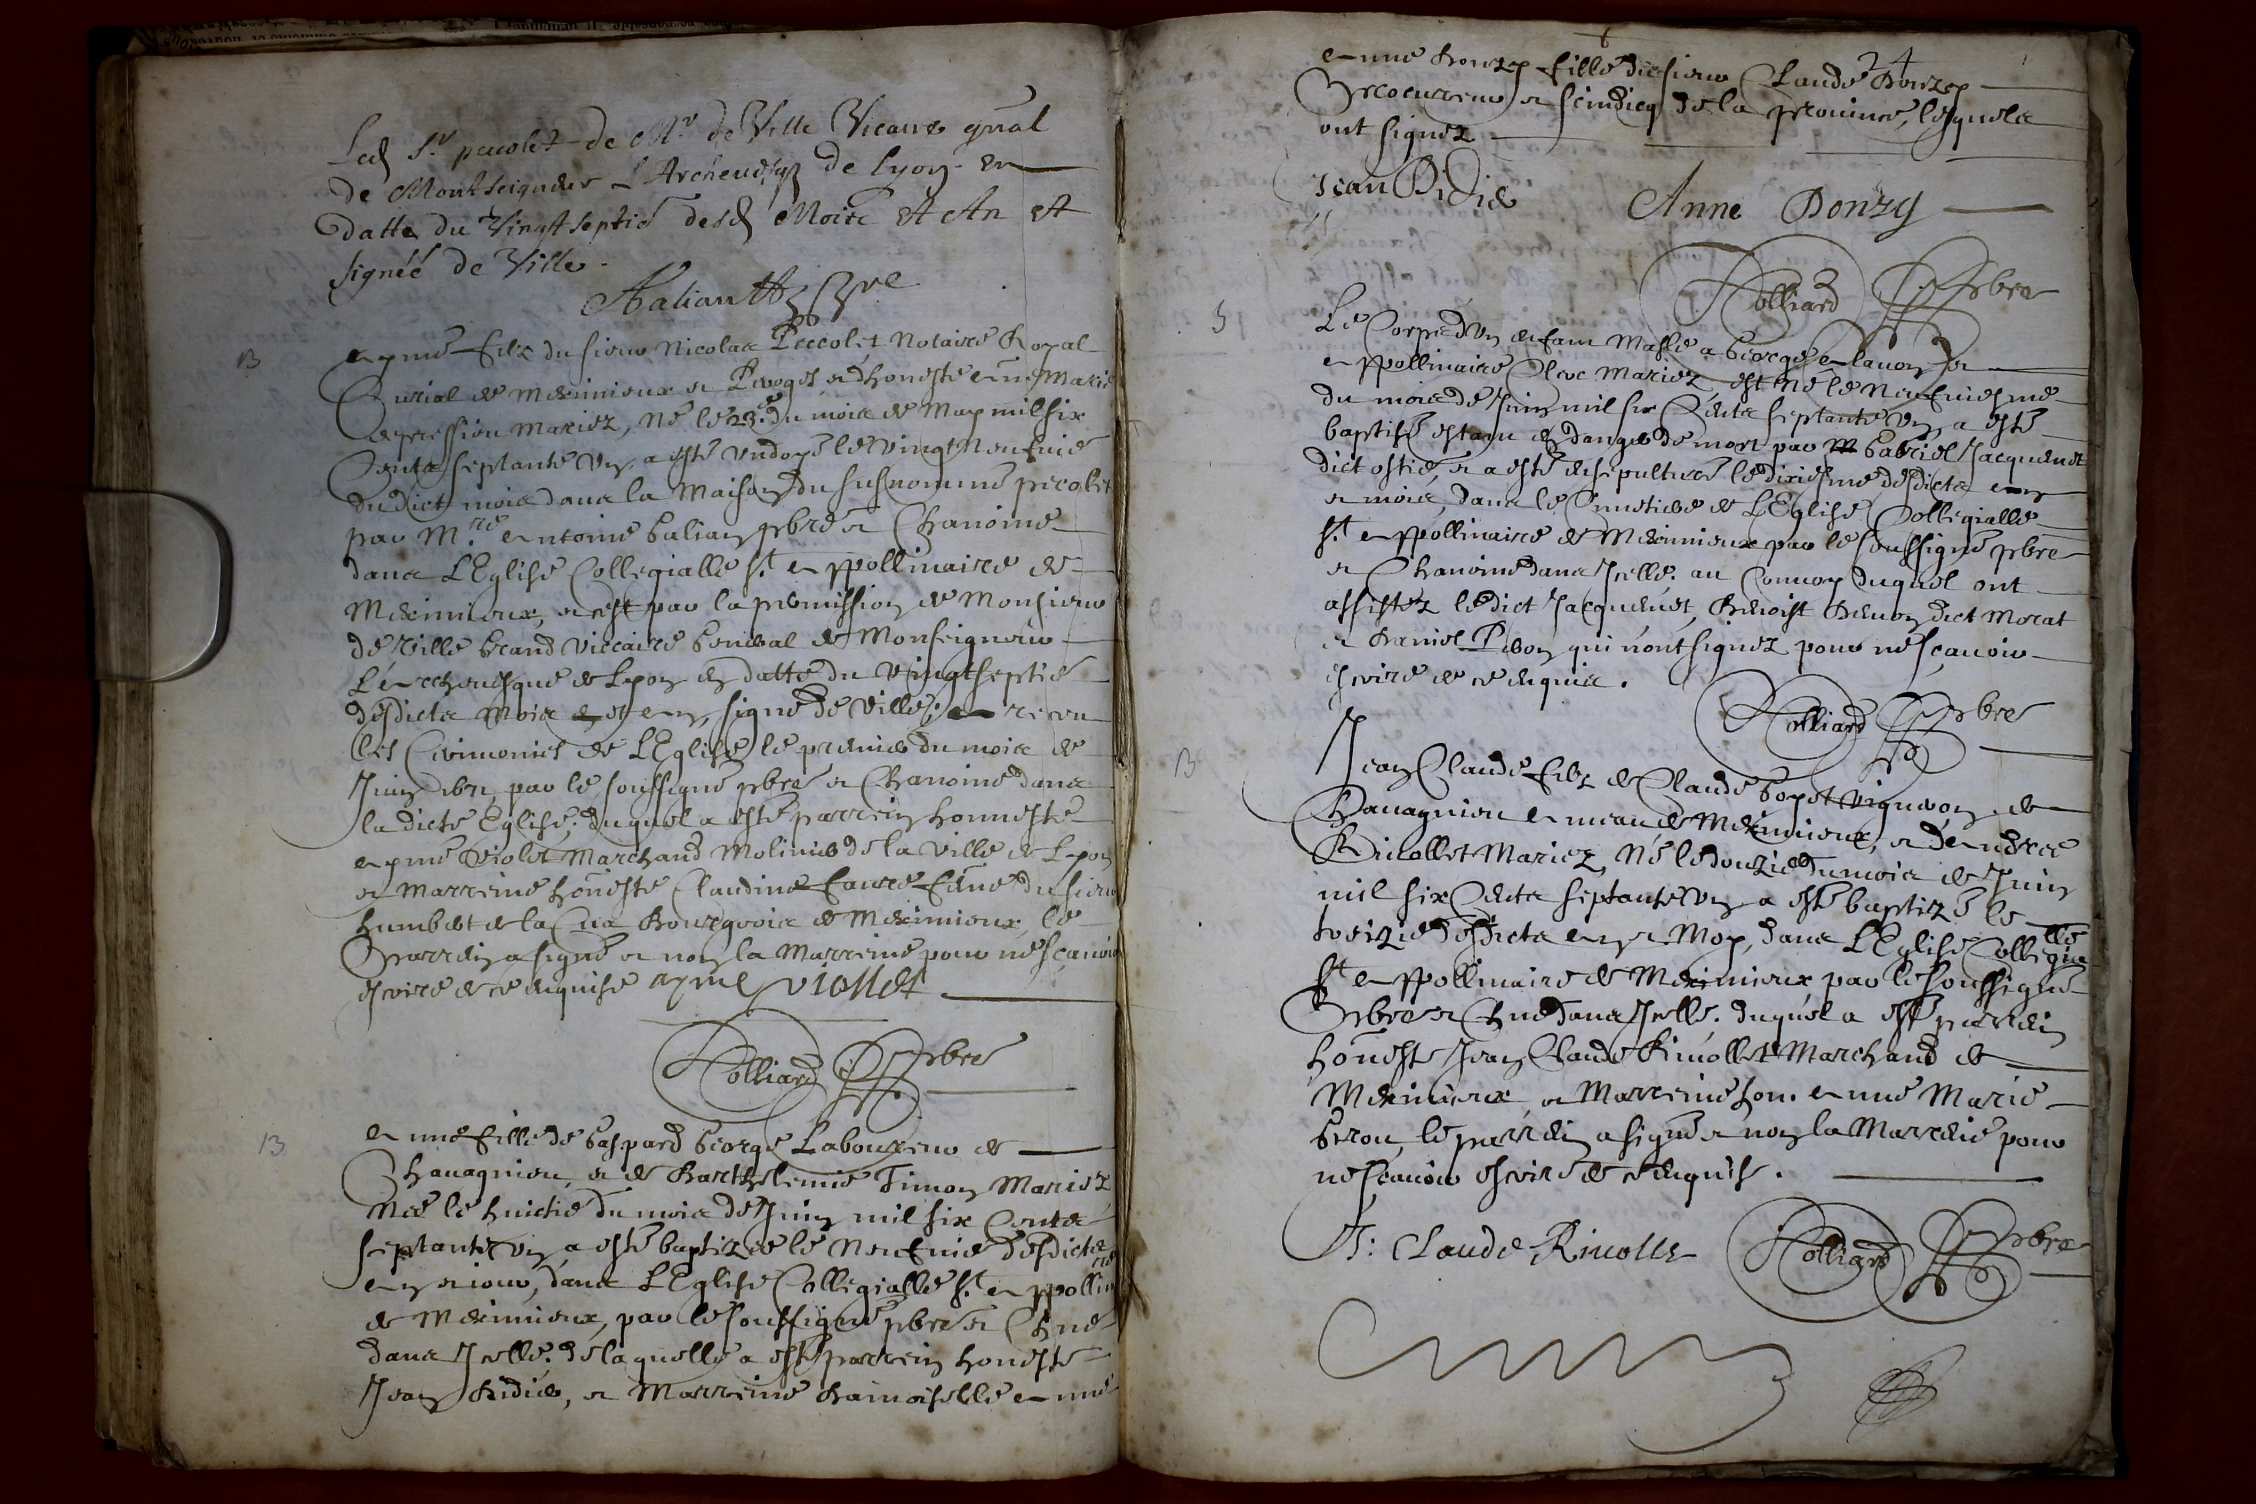 Led Sr pecolet de Mr de Ville Vicaire gnal
de Monseigneur L'Archevesq de Lyon en
datte du Vingt septie desd Mois et An et
signéé de Ville.
B
Aymé filz du sieur Nicolas Peccolet Notaire Royal
Curial de Meximieux et Peroges et d'honeste Anne Marie
mariez, Né le 23e du mois de May mil six
Cents septante Un, a esté Undoyé le vingt Neufuie
du dict mois dans la Maison du susnommé pecolet
par M.re Antoine Galian pbre et Chanoine
dans L'Eglise Collegialle St Appollinaire de
Meximieux, et c'est par la permission de Monsieur
de Ville Grand Viccaire General de Monseigneur
L'Archeuesque de Lyon en datte du Vingt septie
desdicts Mois et an, signé de Ville, a receu
les Cerimonies de L'Eglise le premier du mois de
Juin par le soussigné pbre et Chanoine dans
la dicte Eglise; duquel a esté parrein honneste
Aymé Violet Marchand Molinier de la Ville de Lyon
et Marreine honeste Claudine Faure feme du sieur
humbert de la Cua Bourgeois de Meximieux, le
Parrein a signé et non la Marreine pour ne sçauoir
escrire de ce enquise aymé viollet
Rolliard pbre
13
Anne fille de Gaspard George Laboureur de
Chauagnieu, et de Barthelemie Timon Mariez
Née le huictie du mois de Juin mil six Cents
septante Un a esté baptizée le Neufuie desdicts
an et iour, dans L'Eglise Collegialle St Appollinre
de Meximieux, par le soussigné pbre et Chne
dans Jcelle. de laquelle a esté parrein honeste
Jean Didier, et Marreine damoiselle Anne
24
Anne Donzy fille du sieur Claude Donzy
Procureur et scindicq de la prouince, lesquels
ont signez
Jean Didie
Anne Donzy
Rolliard pbre
5
Le Corps d'Un enfant Masle a George Lauon et
Appollinaire Mariez est Né le Neufuiesme
du mois de Juin mil six Cents septante Un, a esté
baptisé estant en danger de mort par Gabriel Jacquenet
dict ostie, et a esté ensepulturé le dixiesme desdicts an
et mois, dans le Cimetiere de L'Eglise Collegialle
St Appollinaire de Meximieux par le soussigné pbre
et Chanoine dans Jcelle. au Conuoy duquel ont
assistez ledict Jacquenet, Benoist Benon dict Morat
et Daniel Peron qui n'ont signez pour ne sçauoir
escrire de ce enquis.
Rolliard pbre
B
Jean Claude filz de Claude Goyet Vigneron de
Chauagnieu Ameau de Meximieux, et de Andrée
Riuollet Mariez, Né le douzie du mois de Juin
mil six Cents septante Un a esté baptizé le
treizie desdicts an et Moy, dans L'Eglise Collegialle
St Appollinaire de Meximieux par le soussigné
Pbre et Chne dans Jcelle. duquel a esté parrein
honeste Jean Claude Riuollet Marchand de
Meximieux et Marreine hon. Anne Marie
Geron, le parrein a signé et non la Marreine pour
ne sçauoir escrire de ce enquise.
J: Claude Riuolle
Rolliard pbre